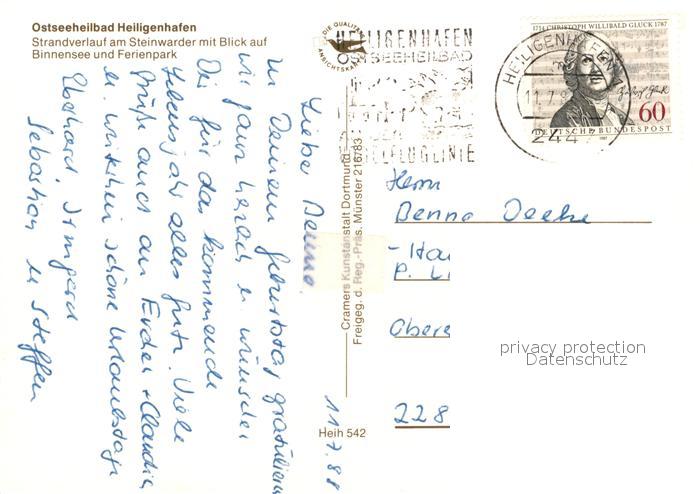 Ostseeheilbad Heiligenhafen
Strandverlauf am Steinwarder mit Blick auf
Binnensee und Ferienpark
DIE QUALITÄTS
ANSICHTSKARTE
HEILIGENHAFEN
OSTSEEHEILBAD
VOGELFLUGLINIE
HEILIGENHAFEN
11.7.8
2447
1714 CHRISTOPH WILLIBALD GLUCK 1787
60
DEUTSCHE BUNDESPOST
11.7.88
Liebe Benno,
zu Deinem Geburtstag gratulieren
wir ganz herzlich u. wünschen
Dir für das kommende
Lebensjahr alles Gute. Viele
Grüße auch an + Claudia
u. weiterhin schöne Urlaubstage
Eberhard, Irmgard
Sebastian u Steffen
Cramers Kunstanstalt Dortmund
Freigeg. d. Reg.-Präs. Münster 216/83
Heih 542
Herrn
Benno
Obere
228
privacy protection
Datenschutz